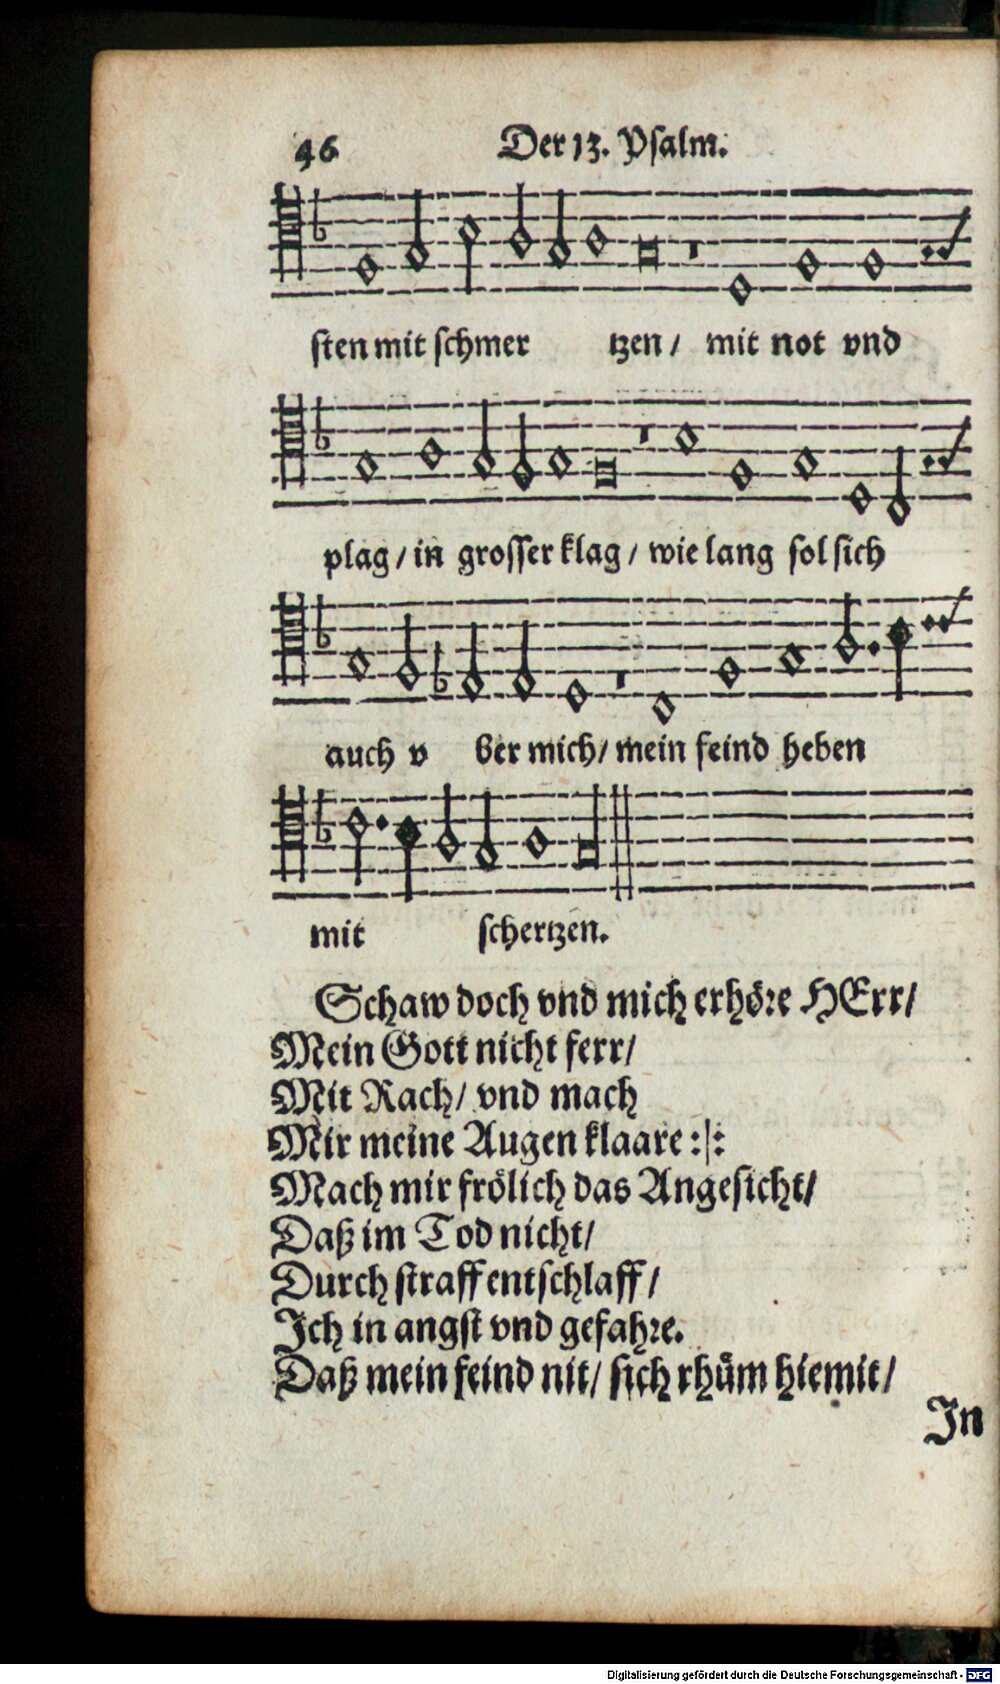 46 Der 13. Psalm.
sten mit schmer tzen / mit not vnd
plag / in grosser klag / wie lang sol sich
auch v ber mich / mein feind heben
mit schertzen.
Schaw doch vnd mich erhöre HErr /
Mein Gott nicht ferr /
Mit Rach / vnd mach
Mir meine Augen klaare :|:
Mach mir frölich das Angesicht /
Daß im Tod nicht /
Durch straff entschlaff /
Ich in angst vnd gefahre.
Daß mein feind nit / sich rhům hiemit /
In
Digitalisierung gefördert durch die Deutsche Forschungsgemeinschaft - DFG